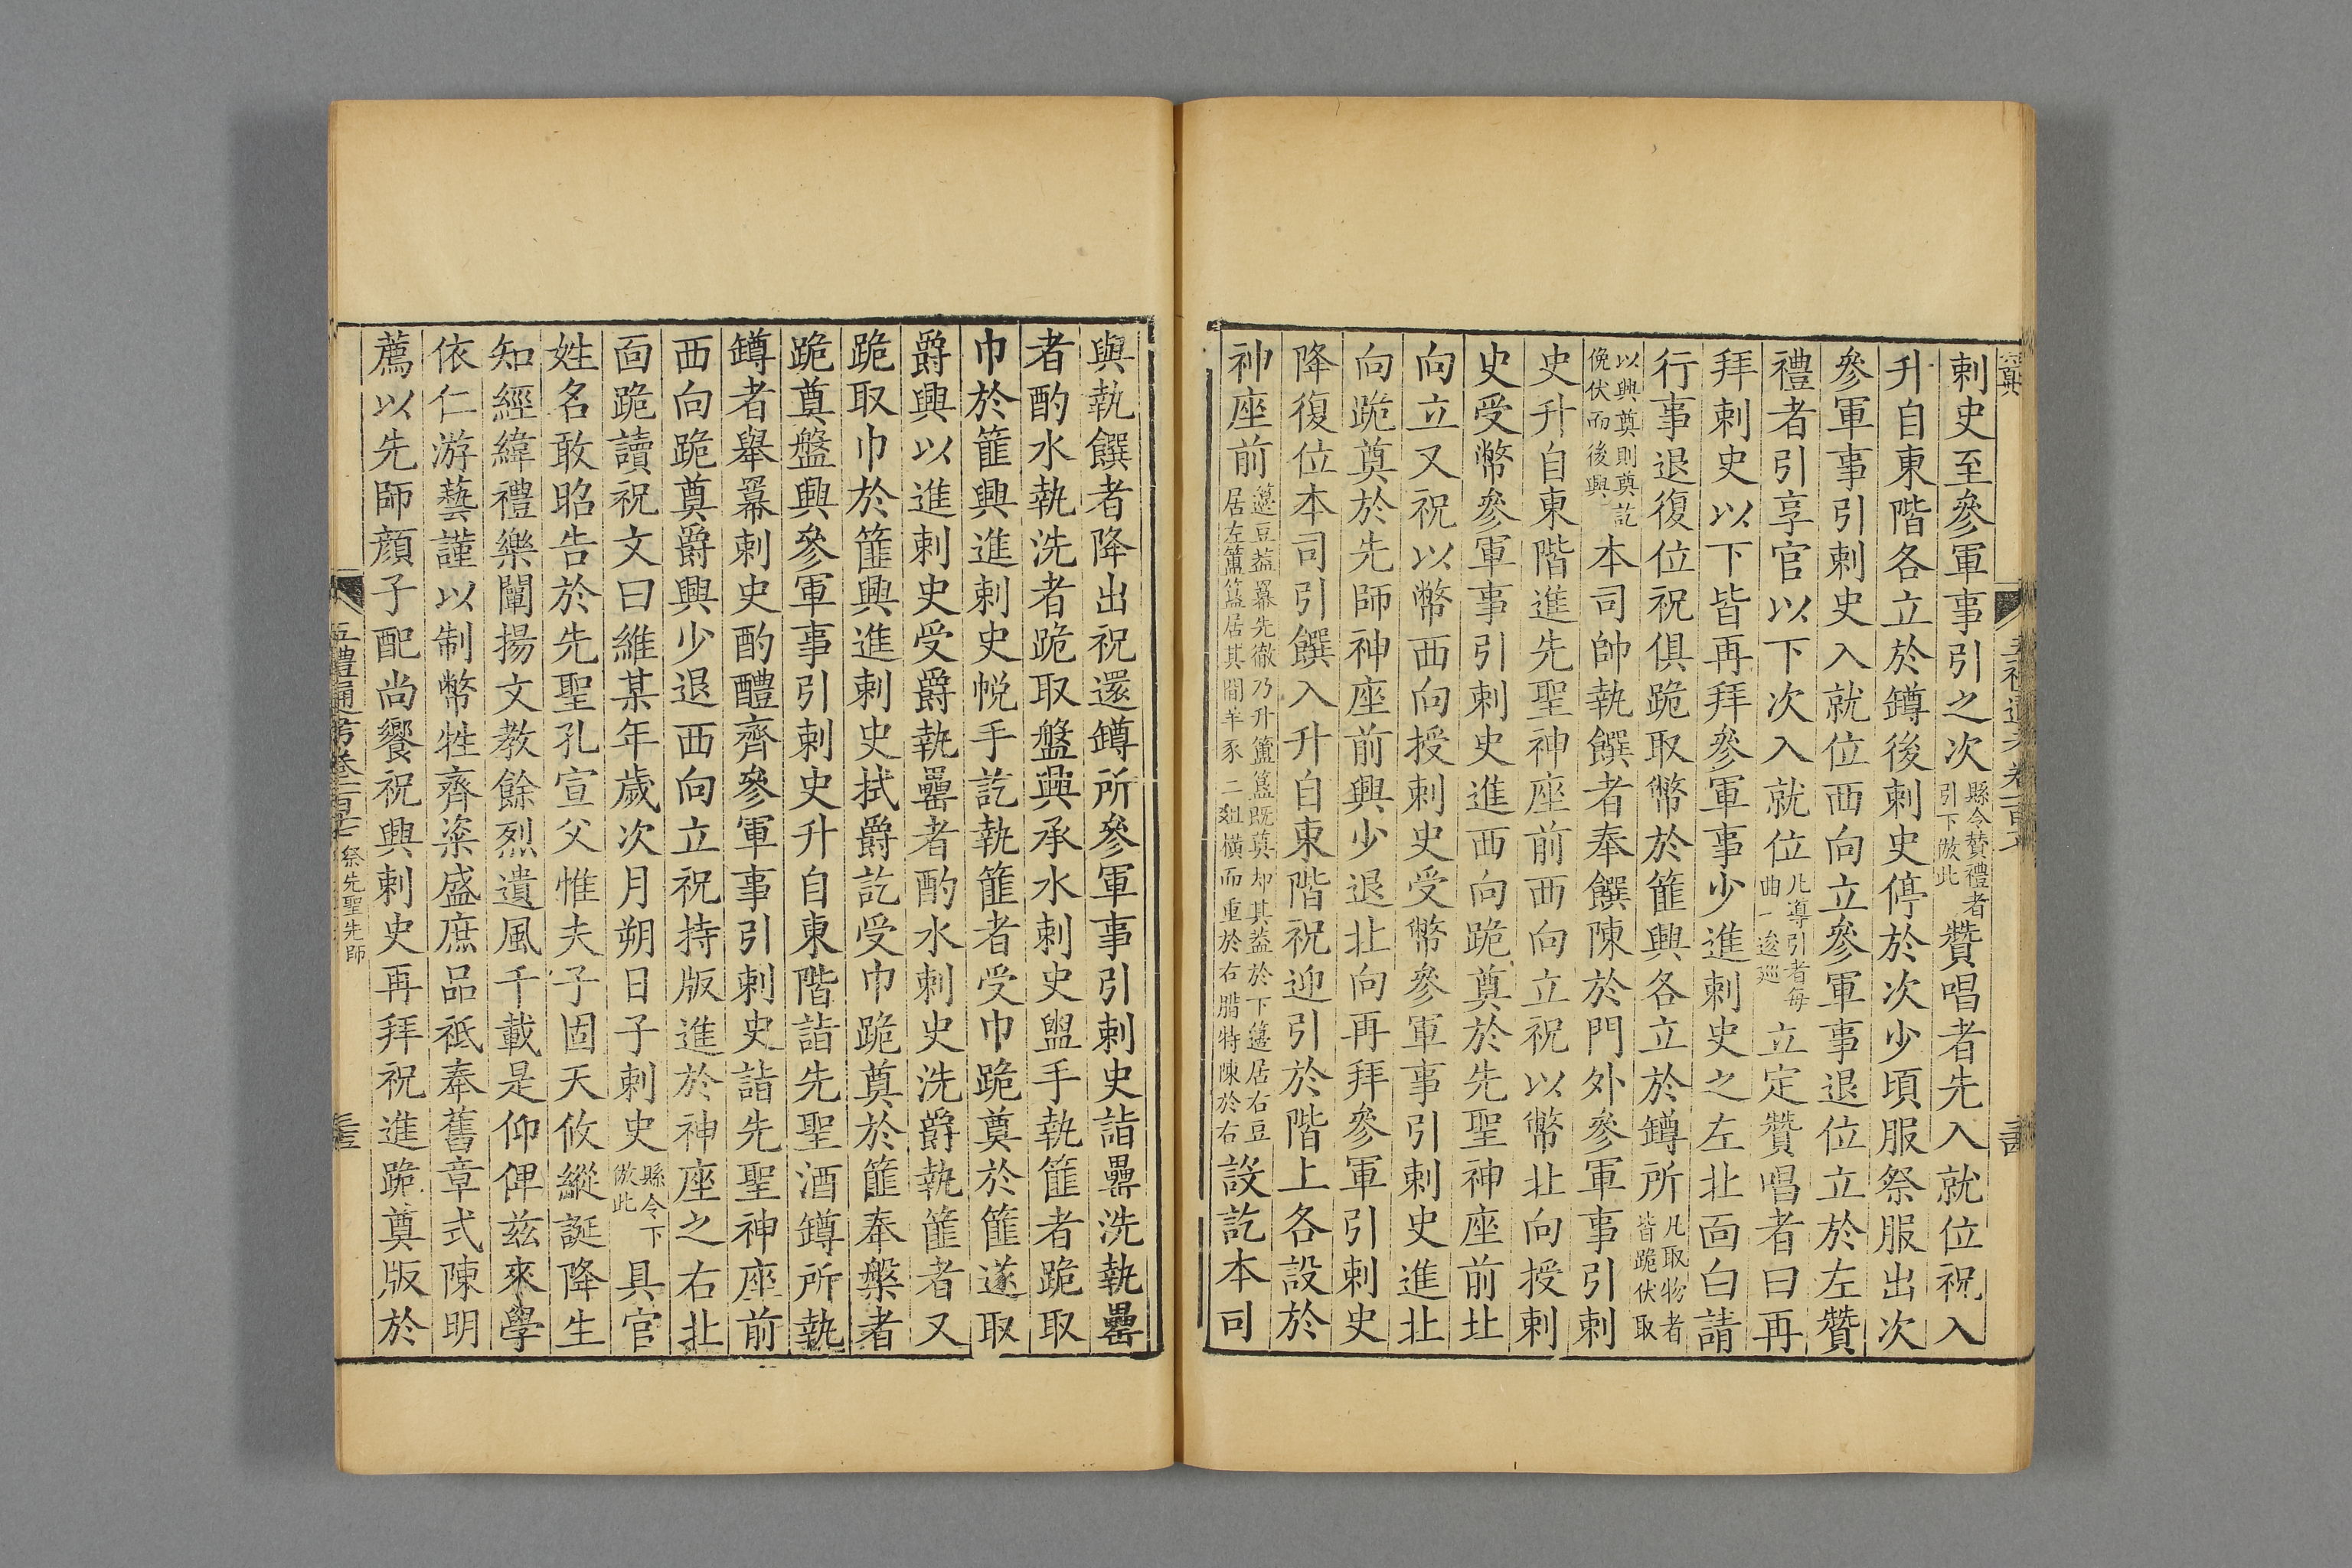 刺史至參軍事引之次縣令贊禮者引下倣此贊唱者先入就位祝入
升自東階各立於罇後刺史停於次少頃服祭服出次
參軍事引刺史入就位西向立參軍事退位立於左贊
禮者引享官以下次入就位凡導引者每曲一逡巡立定贊唱者曰再
拜刺史以下皆再拜參軍事少進刺史之左北面白請
行事退復位祝俱跪取幣於篚興各立於罇所凡取物者皆跪伏取
以興奠則奠訖俛伏而後興本司帥執饌者奉饌陳於門外參軍事引刺
史升自東階進先聖神座前西向立祝以幣北向授刺
史受幣參軍事引刺史進西向跪奠於先聖神座前北
向立又祝以幣西向授刺史受幣參軍事引刺史進北
向跪奠於先師神座前興少退北向再拜參軍引刺史
降復位本司引饌入升自東階祝迎引於階上各設於
神座前籩豆蓋羃先徹乃升簠簋既奠却其蓋於下籩居右豆居左簠簋居其間羊豕二俎橫而重於右腊特陳於右設訖本司
與執饌者降出祝還罇所參軍事引刺史詣罍洗執罍
者酌水執洗者跪取盤興承水刺史盥手執篚者跪取
巾於篚興進刺史帨手訖執篚者受巾跪奠於篚遂取
爵興以進刺史受爵執罍者酌水刺史洗爵執篚者又
跪取巾於篚興進刺史拭爵訖受巾跪奠於篚奉槃者
跪奠盤興參軍事引刺史升自東階詣先聖酒罇所執
罇者舉羃刺史酌醴齊參軍事引刺史詣先聖神座前
西向跪奠爵興少退西向立祝持版進於神座之右北
面跪讀祝文曰維某年歲次月朔日子刺史縣令下倣此具官
姓名敢昭告於先聖孔宣父惟夫子固天攸縱誕降生
知經緯禮樂闡揚文教餘烈遺風千載是仰俾茲來學
依仁游藝謹以制幣牲齊粢盛庶品祗奉舊章式陳明
薦以先師顏子配尚饗祝興刺史再拜祝進跪奠版於
五禮通考卷一百十七 祭先聖先師